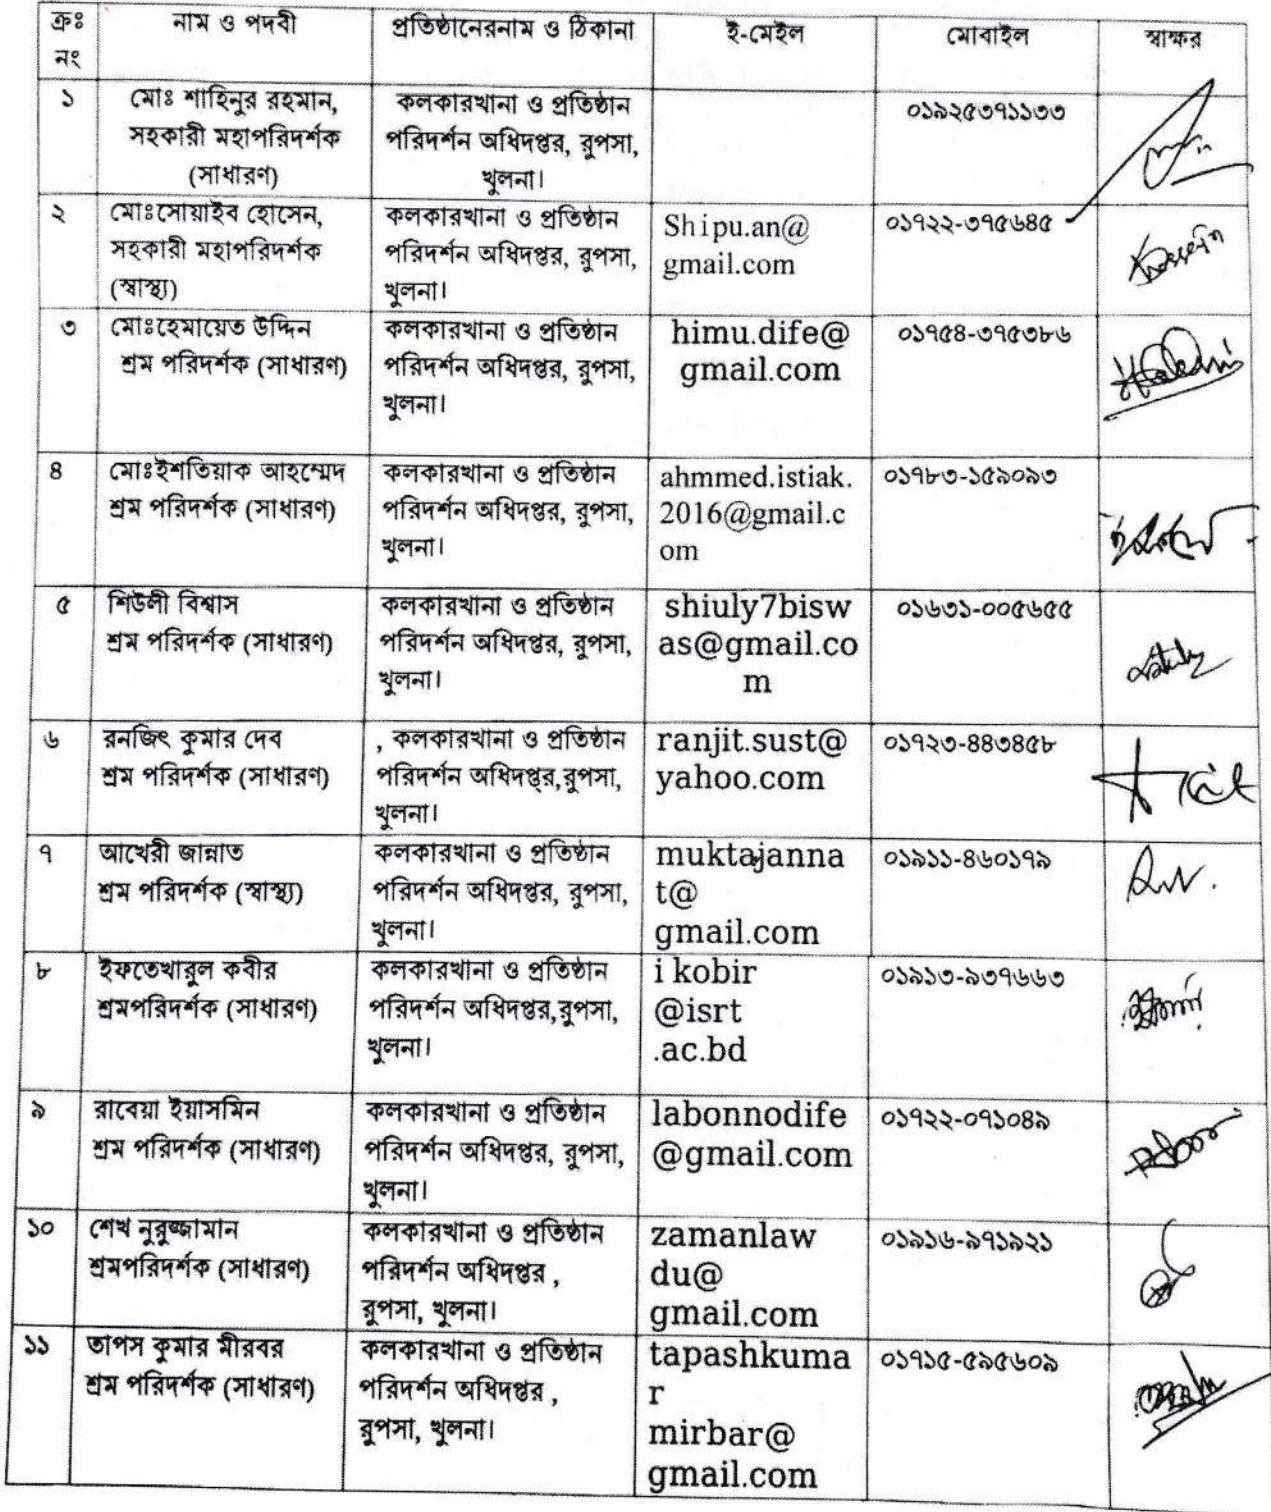 ক্রঃ নং | নাম ও পদবী | প্রতিষ্ঠানেরনাম ও ঠিকানা | ই-মেইল | মোবাইল | স্বাক্ষর
১
মোঃ শাহিনুর রহমান,
সহকারী মহাপরিদর্শক
(সাধারণ)
কলকারখানা ও প্রতিষ্ঠান
পরিদর্শন অধিদপ্তর, রুপসা,
খুলনা।
০১৯২৫৩৭১১৩৩
২
মোঃসোয়াইব হোসেন,
সহকারী মহাপরিদর্শক
(স্বাস্থ্য)
কলকারখানা ও প্রতিষ্ঠান
পরিদর্শন অধিদপ্তর, রুপসা,
খুলনা।
Shipu.an@
gmail.com
০১৭২২-৩৭৫৬৪৫
৩
মোঃহেমায়েত উদ্দিন
শ্রম পরিদর্শক (সাধারণ)
কলকারখানা ও প্রতিষ্ঠান
পরিদর্শন অধিদপ্তর, রুপসা,
খুলনা।
himu.dife@
gmail.com
০১৭৫৪-৩৭৫৩৮৬
৪
মোঃইশতিয়াক আহম্মেদ
শ্রম পরিদর্শক (সাধারণ)
কলকারখানা ও প্রতিষ্ঠান
পরিদর্শন অধিদপ্তর, রুপসা,
খুলনা।
ahmmed.istiak.
2016@gmail.c
om
০১৭৮৩-১৫৯০৯৩
৫
শিউলী বিশ্বাস
শ্রম পরিদর্শক (সাধারণ)
কলকারখানা ও প্রতিষ্ঠান
পরিদর্শন অধিদপ্তর, রুপসা,
খুলনা।
shiuly7bisw
as@gmail.co
m
০১৬৩১-০০৫৬৫৫
৬
রনজিৎ কুমার দেব
শ্রম পরিদর্শক (সাধারণ)
, কলকারখানা ও প্রতিষ্ঠান
পরিদর্শন অধিদপ্ত্র,রুপসা,
খুলনা।
ranjit.sust@
yahoo.com
০১৭২৩-৪৪৩৪৫৮
৭
আখেরী জান্নাত
শ্রম পরিদর্শক (স্বাস্থ্য)
কলকারখানা ও প্রতিষ্ঠান
পরিদর্শন অধিদপ্তর, রুপসা,
খুলনা।
muktajanna
t@
gmail.com
০১৯১১-৪৬০১৭৯
৮
ইফতেখারুল কবীর
শ্রমপরিদর্শক (সাধারণ)
কলকারখানা ও প্রতিষ্ঠান
পরিদর্শন অধিদপ্তর,রুপসা,
খুলনা।
i kobir
@isrt
.ac.bd
০১৯১৩-৯৩৭৬৬৩
৯
রাবেয়া ইয়াসমিন
শ্রম পরিদর্শক (সাধারণ)
কলকারখানা ও প্রতিষ্ঠান
পরিদর্শন অধিদপ্তর, রুপসা,
খুলনা।
labonnodife
@gmail.com
০১৭২২-০৭১০৪৯
১০
শেখ নুরুজ্জামান
শ্রমপরিদর্শক (সাধারণ)
কলকারখানা ও প্রতিষ্ঠান
পরিদর্শন অধিদপ্তর ,
রুপসা, খুলনা।
zamanlaw
du@
gmail.com
০১৯১৬-৯৭১৯২১
১১
তাপস কুমার মীরবর
শ্রম পরিদর্শক (সাধারণ)
কলকারখানা ও প্রতিষ্ঠান
পরিদর্শন অধিদপ্তর ,
রুপসা, খুলনা।
tapashkuma
r
mirbar@
gmail.com
০১৭১৫-৫৯৫৬০৯